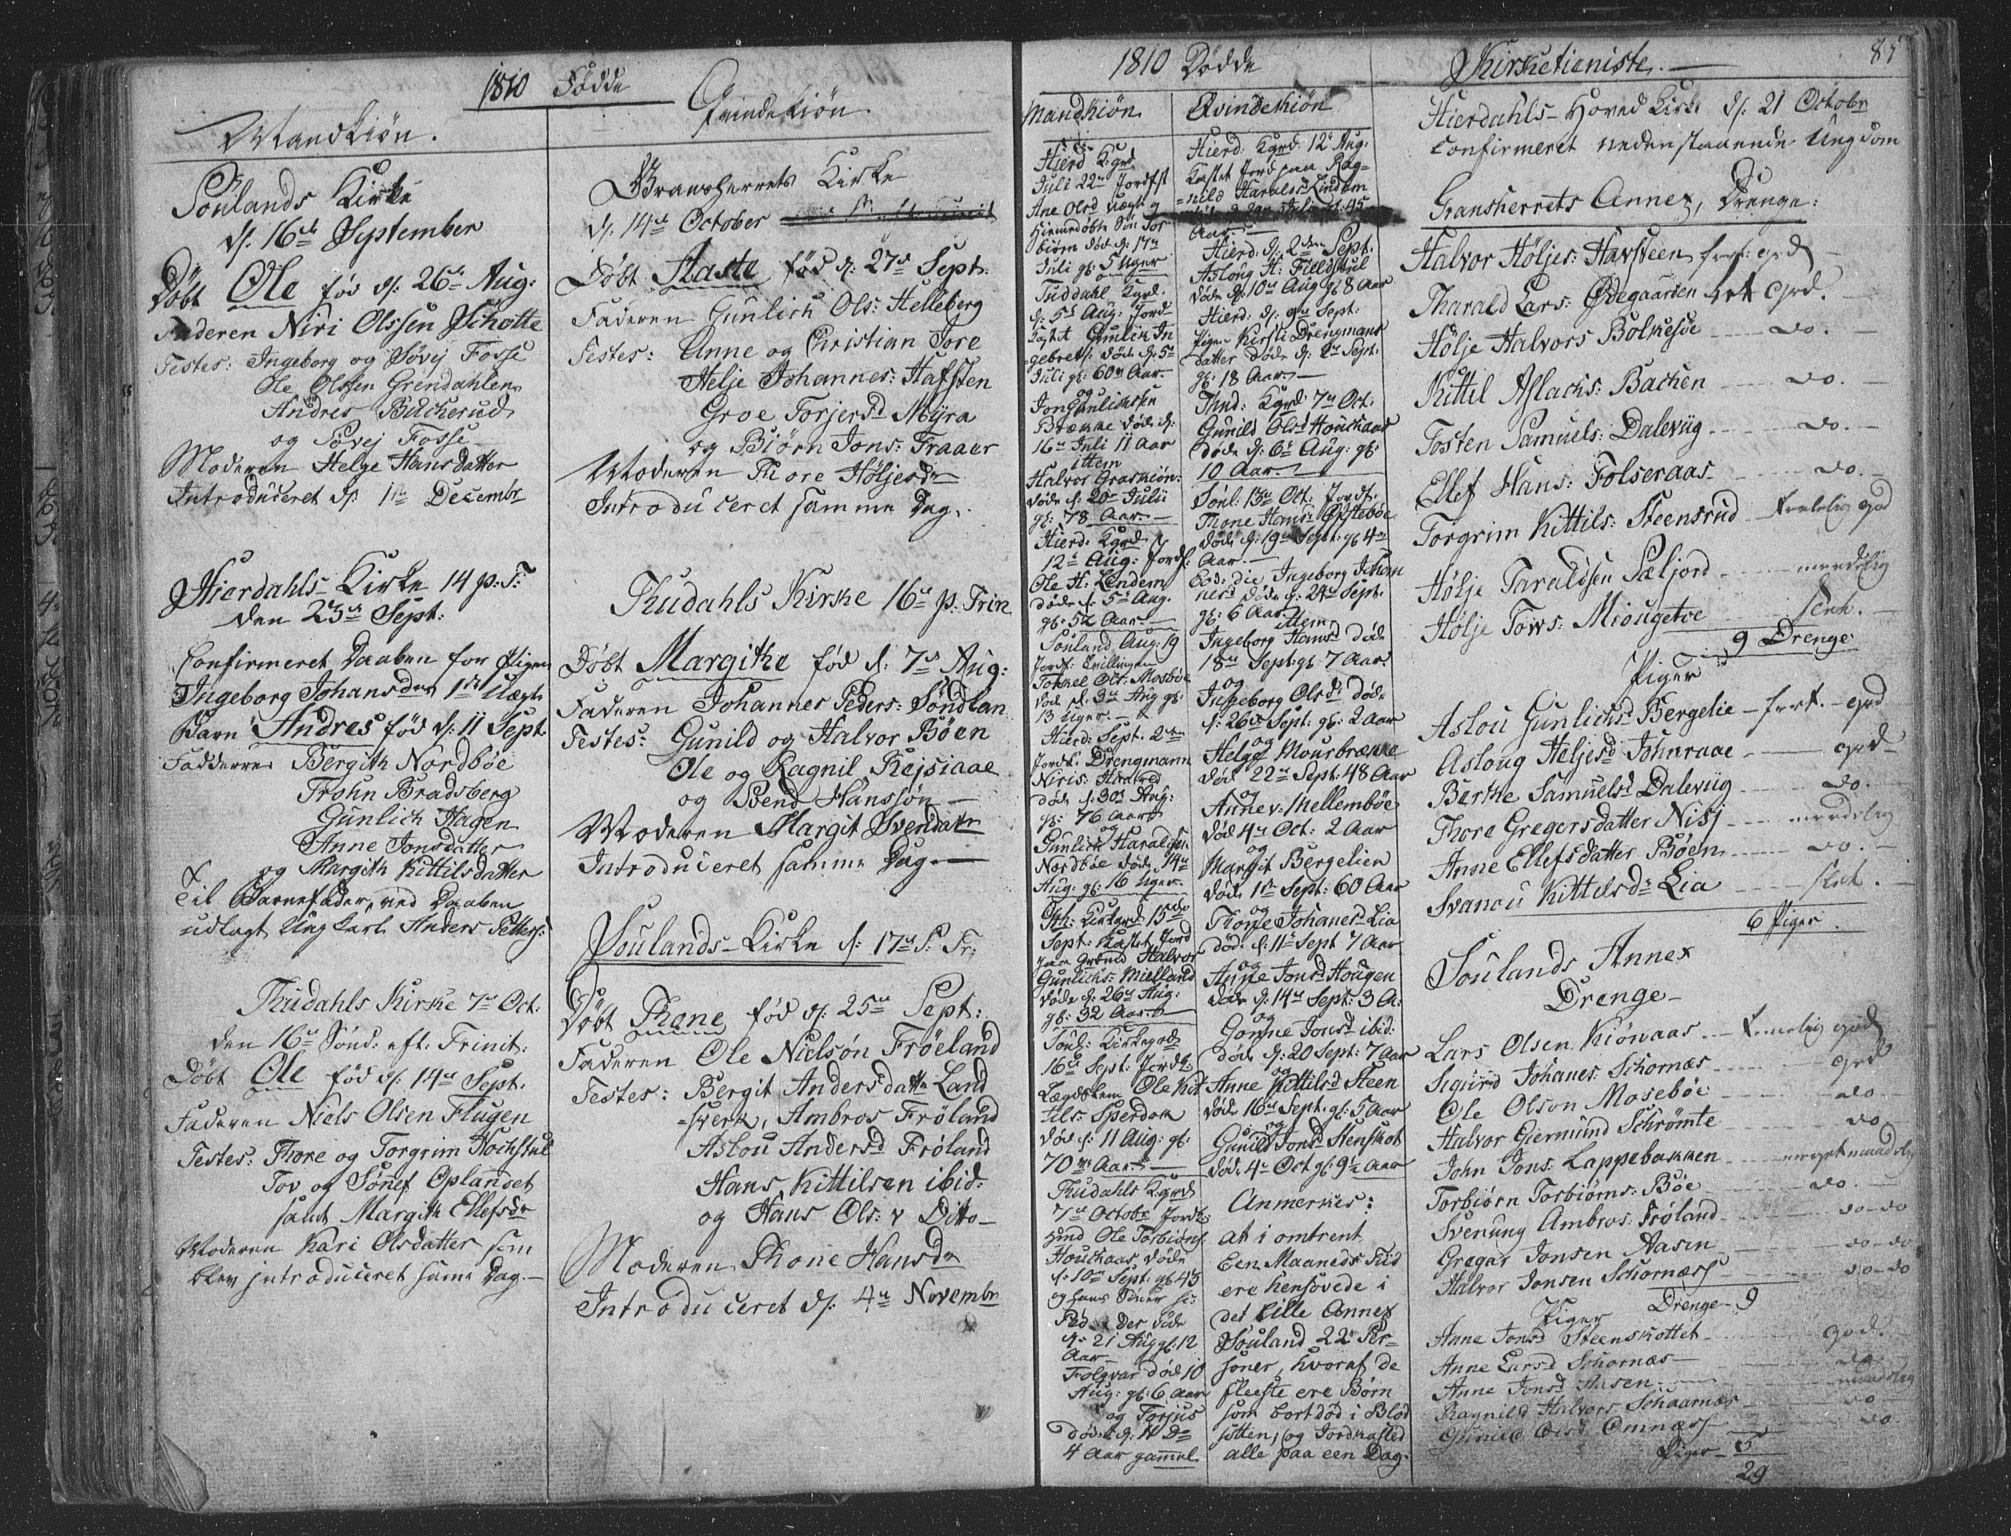 1810 Födde
Mandkiön.
Sönlands Kirke
d: 16de September
Döbt Ole föd d: 26de Aug:
Faderen Niri Olssen Schotte
Testes: Ingeborg og Sövej Fosse
Ole Olssen Grendahlen
Andres Bacherud
og Sövej Fosse
Moderen Helge Hansdatter
Introduceret d: 1te Decembr
Hierdahls Kirke 14 p. T:
den 23de Sept:
Confirmeret Daaben for Pigen
Ingeborg Johansdr 1te Uægte
Barn Andres föd d: 11 Sept.
Fadderne Bergith Nordböe
Trohn Bradsberg
Gunlich Hagen
Anne Jonsdatter
og Margith Kittilsdatter
Til Barnefader, ved Daaben
udlagt Ungkarl Anders Petters:
Thudahls Kirke 7de Oct:
den 16de Sönd: eft: Trinit:
Döbt Ole föd d: 14de Sept.
Faderen Niels Olsen Flugen
Testes: Thore og Torgrim Hochstul
Tov og Sönef Oplandet
samt Margith Ellefsdr
Moderen Kari Olsdatter som
blev introduceret same Dag.
Qvindekiön.
Gransherrets Kirke
d: 14de October
Döbt Aaste föd d: 27de Sept.
Faderen Gunlich Ols: Helleberg
Testes: Anne og Christian Tore
Helje Johannes: Hafsten
Groe Torjersd Myra
og Biörn Jons: Traaer
Moderen Thore Höljesdr
Introduceret samme Dag.
Thudahls Kirke 16de p. Trin
Döbt Margithe föd d: 7de Aug:
Faderen Johannes Peders: Söndlan
Testes: Gunild og Halvor Böen
Ole og Ragnil Rejsiaae
og Svend Hanssön
Moderen Margit Svendatr
Introduceret samme Dag.
Soulands Kirke d: 17de S: Tr:
Döbt Thone föd d: 25de Sept:
Faderen Ole Nielsön Fröeland
Testes: Bergit Andersdatter Land
=sverk, Ambros Fröland
Aslou Andersd Fröland
Hans Kittilsen ibid:
og Hans Ols: v Ditto
Moderen Thone Hansdr
Introduceret d: 4de Novembr
1810 Dödde
Mandkiön
Hierd K:grd
Juli 22de Jordfst
Ane Olsd uægte
hiemedöbte Sön Tor
biörn död d: 17de
Juli gl: 5 Uger
Tuddahl K:grd.
d: 5te Aug: Jord
kastet Gunlik In
gebrets: döde d: 5te
Juli gl: 60 Aar.
og
Jon Gunlichsen
döde d:
16de Juli 11 Aar
ittem
Halvor Graskiön:
döde d: 20de Julii
gl: 78 Aar.
Hierd: Kgrd
12te Aug: Jordf.
Ole H: Lindem
döde d: 5te Aug.
gl: 52 Aar.
Souland Aug: 19
Jordf: Tvillingen
Torkel Oct: Mosböe
död d: 3de Aug gl:
13 Uger.
Hierd: Sept. 2den
Jordf: Drengmann
Niris: Haatved
död d: 30te Aug:
gl: 76 Aar
og
Gunlich Haralds:
Nordböe döde 14de
Aug: gl: 16 Uger.
Grh: Kirkegrd 15de
Sept: Kastet Jord
paa Halvor
Gunlichs: Mielland
döde d: 26de Aug:
gl: 32 Aar.
Soul: Kirkegrd
16de Sept: Jordf:
Lægdslem Ole Kit
tils: Sperdok
död d: 11 Aug: gl:
70 Aar.
Thudahls K:grd
7de Octobr Jordf:
Ole Torbiörns:
Houkaas, döde
d: 10de Sept. gl 43
og hans Söner
21 Aug gl. 12
Aar
Folqvar död 10
Aug: gl: 6 Aar
og Torjus
döde d: 11 Do
4 Aar gammel
Qvindekiön
Hierd: Kgrd: 12te Aug:
Kastet Jord paa Rag-
=nild Haralds: Lindem
gl: 45
Aar.
Hierd: d: 2den Sept:
Aslaug H: Fieldskul
döde d: 10de Aug gl 8 Aar
Hierd: d: 9de Sept:
Pigen Kirsti Drengmans
datter döde d: 2de Sept:
gl: 18 Aar.
Thud: Kgrd: 7de Oct:
Gunild Olsd Houskaas
döde d: 6te Aug: gl:
10 Aar.
Soul: 13de Oct: Jordf:
Thone Hansd Ofsteböe
döde d: 19de Sept: gl 4
Aar.
Ead: die Ingeborg Johan
nesd döde d: 24de Sept.
gl: 6 Aar.
ittem
Ingeborg Hansd döde
18de Sept: gl: 7 Aar:
og
Ingeborg Olsd: döde
d: 26de Sept: gl: 2 Aar
og
Helge Mourbrække
död 22de Sept: 48 Aar
og
Anne v: Mellemböe
död 4de Oct: 2 Aar
og
Margit Bergelien
död 1te Sept: 60 Aar
og
Thone Johanesd Lia
död: d: 11te Sept 7 Aar
og
Anne Jonsd Hougen
död d: 14de Sept: 3 A:
og
Gonne Jonsd ibid:
döde d: 20 Sept: 7 Aar
og
Anne Kittilsd Steen
döde 16de Sept. gl: 5 Aar
og
Gunild Jonsd Stenskot
död. 4de Oct gl: 9 Aar
Anmerkes:
at i omtrent
Een Maaneds Tid
ere hensövede i
det lille Annex
Souland 22de Per-
soner, hvoraf de
fleeste ere Börn
som bortdöd i Blod
sotten, og Jordkasted
alle paa een Dag.
Kirketieniste.
85
Hierdahls Hoved Kirke d: 21 Octobr
Confirmeret nedenstaaende Ungdom
Gransherrets Annex, Drenge:
Halvor Höljes: Havsteen fort: god
Tharald Lars: Ödegaarden god.
Hölje Halvors Bolkesöe do.
Kittil Aslachs: Bachen do.
Tosten Samuels: Dalevüg do.
Ellef Hans: Folseraas do.
Torgrim Kittils: Steensrud temlelig god
Hölje Taraldsen Sæljord maadelig
Hölje Tovs: Miougetve slet.
9 Drenge
Piger
Aslou Gunlichsd Bergelie fort. god
Aslaug Heljesd Johnraae god
Berthe Samuelsd Dalevüg do.
Thore Gregersdatter Nisj maadelig
Anne Ellefsdatter Böen do.
Svanou Kittelsdr Lia slet.
6 Piger
Soulands Annex
Drenge
Lars Olsen Kiönaas temelig god
Sigurd Johanes: Schornæs god
Ole Olson Moseböe do
Halvor Giermund Schrömte do
John Jons: Lappebakken meget maadelig
Torbiörn Torbiörns: Böe do.
Svenung Ambros: Fröland do do
Gregar Jonsen Aasen do do
Halvor Jonsen Schornæs do do
Drenge 9
Piger
Anne Jonsd Steenskottet god.
Anne Larsd Schornæs do.
Anne Jonsd Aasen maadelig
Ragnild Halvors Schaarnæs do
Gunild Olsd Omnæs do.
Piger 5
29